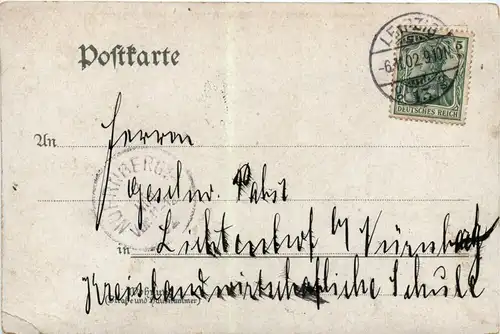 Postkarte
LEIPZIG
-6.11.02.9-10N.
5
DEUTSCHES REICH
An
Herrn
NÜRNBERG
Geschw. Pabst
in Lichtenhof b/ Nürnberg
Kreislandwirtschaftliche Schule
(Straße und Hausnummer)